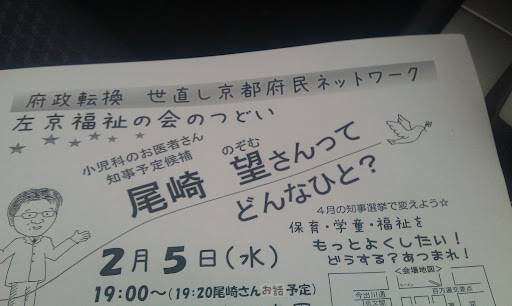 府政転換 世直し京都府民ネットワーク
左京福祉の会のつどい
小児科のお医者さん
知事予定候補
のぞむ
尾崎 望さんって
どんなひと?
4月の知事選挙で変えよう☆
保育・学童・福祉を
もっとよくしたい!
どうする?あつまれ!
2月5日(水)
19:00~(19:20尾崎さんお話予定)
<会場地図>
今出川通
百万遍交差点